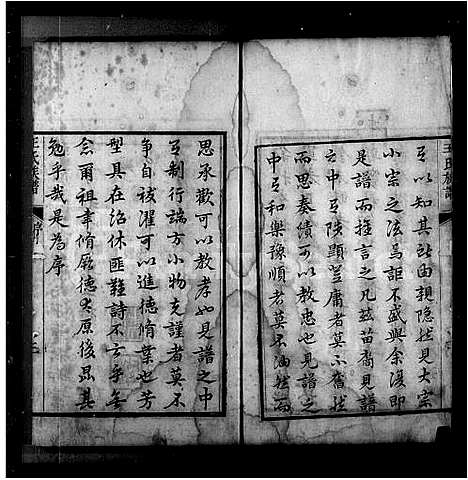 王氏族譜
可以知其所由親隱然見大宗
小宗之法焉詎不盛與余復即
是譜而推言之凡茲苗裔見譜
之中可陟顯登庸者莫不奮然
而思奏績可以教忠也見譜之
中可和樂豫順者莫不油然而
思承歡可以教孝如見譜之中
可制行端方小物克謹者莫不
爭自祓濯可以進德脩業也芳
型具在紹休匪難詩不云乎無
念爾祖聿脩厥德爰原後昆其
勉乎哉是為序
王氏族譜
序